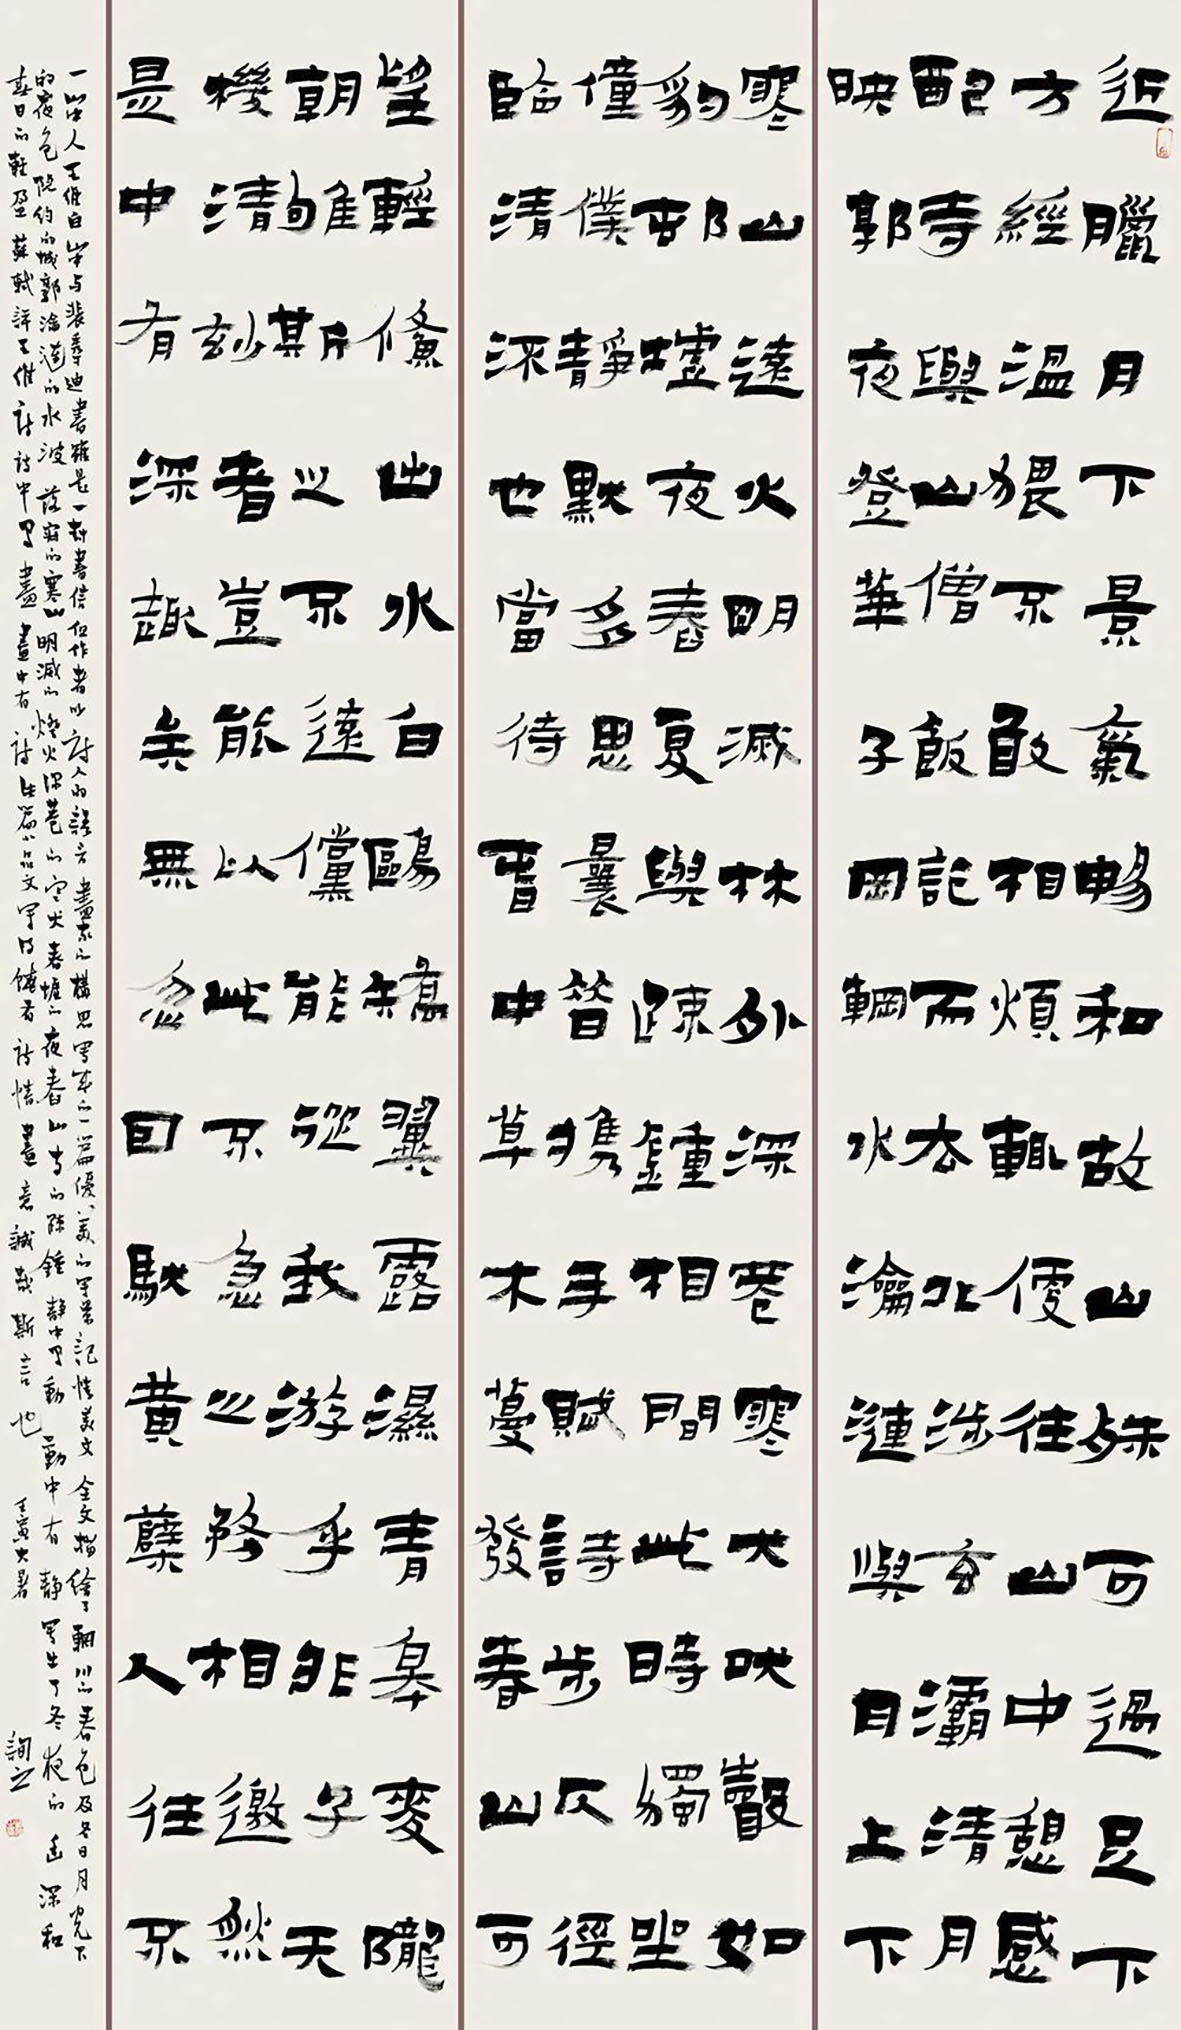 近臘月下景氣暢和故山殊可過足下
方經溫猥不敢相煩輒便往山中憩感
配寺與山僧飯訖而去北涉玄灞清月
映郭夜登華子岡輞水淪漣與月上下
寒山遠火明滅林外深巷寒犬吠聲如
豹邨墟夜舂夏與疎鍾相間此時獨坐
僮僕靜默多思曩昔攜手賦詩步仄徑
臨清流也當待旾中草木蔓發春山可
望輕鯈出水白鷗矯翼露濕青皋麥隴
朝雊斯之不遠儻能從我游乎非子天
機清妙者豈能以此不急之務相邀然
是中有深趣矣無忽因馱黃蘗人往不
一山中人王維白 山中与裴秀才迪書雖是一封書信但作者以詩人的語言畫家的構思寫成的一篇優美的寫景記情美文全文描繪了輞川的春色及冬日月光下
的夜色隐约的城郭淪漣的水波落寂的寒山明滅的燈火深巷的犬春墟的夜舂山寺的疎鍾静中有動動中有静寫出了冬夜的幽深和
春日的輕盈蘇軾評王維詩詩中有畫畫中有詩此篇小品文字饒有詩情畫意誠哉斯言也 壬寅大暑 詢之